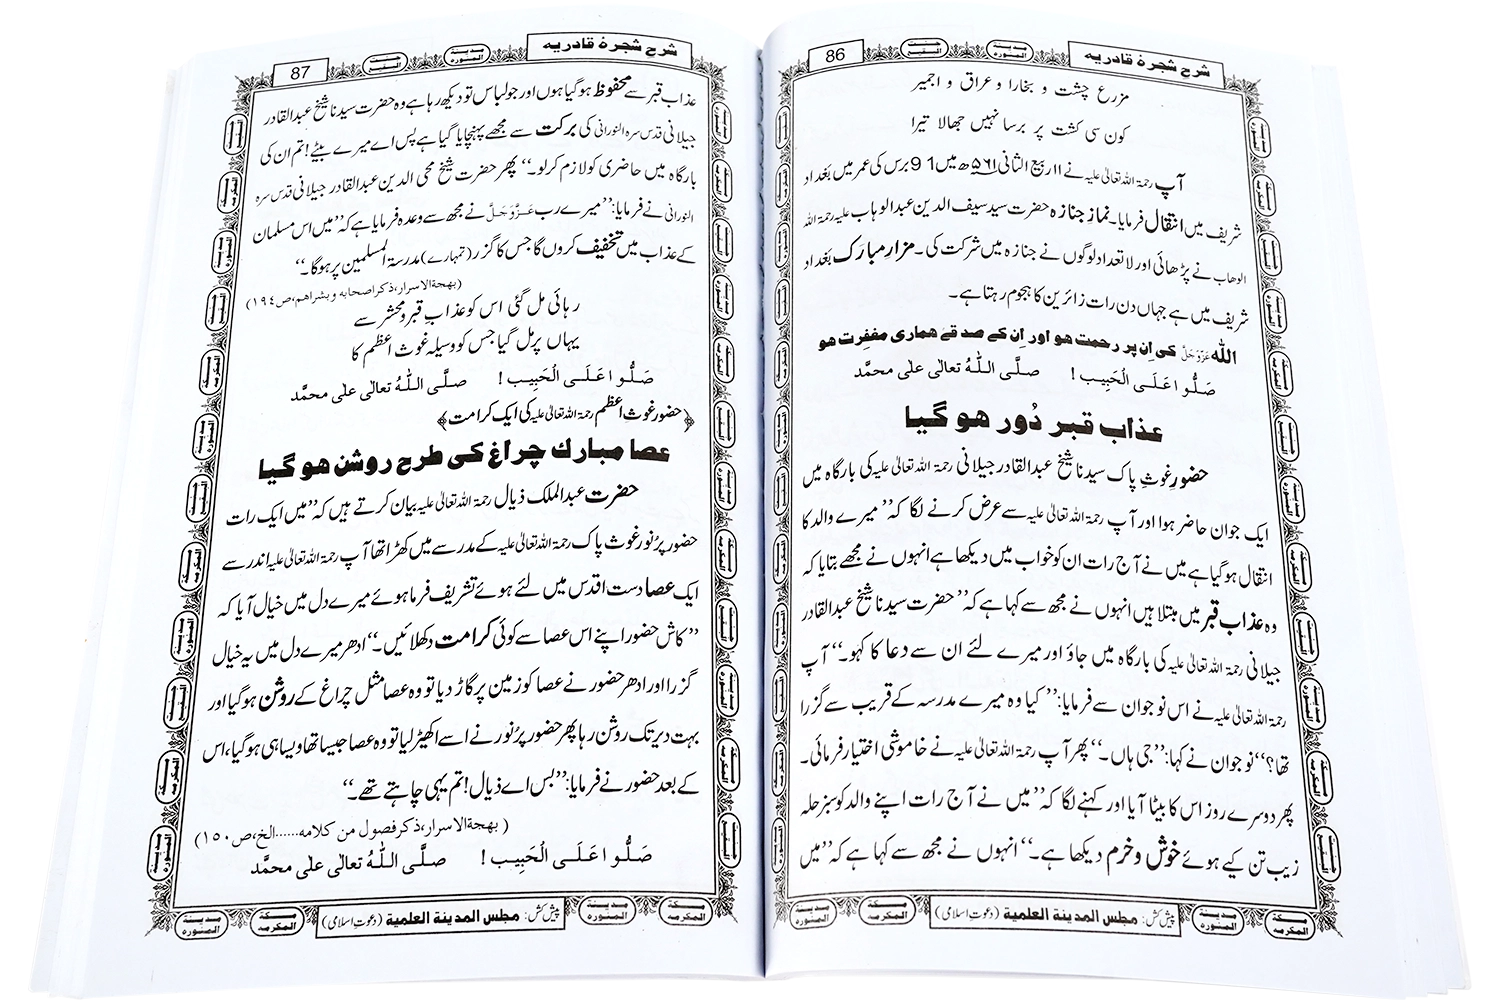 شرح شجرۂ قادریہ
86
مزرعِ چشت و بخارا و عراق و اجمیر
کون سی کشت پر برسا نہیں جھالا تیرا
آپ رحمۃ اللہ تعالیٰ علیہ نے ۱۱ ربیع الثانی ۵۶۱ھ میں 91 برس کی عمر میں بغداد
شریف میں انتقال فرمایا۔ نمازِ جنازہ حضرت سید سیف الدین عبدالوہاب علیہ رحمۃ اللہ
الوھاب نے پڑھائی اور لاتعداد لوگوں نے جنازہ میں شرکت کی۔ مزارِ مبارک بغداد
شریف میں ہے جہاں دن رات زائرین کا ہجوم رہتا ہے۔
اللہ عَزَّوَجَلَّ کی اِن پر رحمت ہو اور اِن کے صدقے ہماری مغفرت ہو
صَلُّوا عَلَی الْحَبِیب ! صلَّی اللّٰہُ تعالٰی علٰی محمَّد
عذاب قبر دُور ہو گیا
حضورِ غوثِ پاک سیدنا شیخ عبدالقادر جیلانی رحمۃ اللہ تعالیٰ علیہ کی بارگاہ میں
ایک جوان حاضر ہوا اور آپ رحمۃ اللہ تعالیٰ علیہ سے عرض کرنے لگا کہ ”میرے والد کا
انتقال ہو گیا ہے میں نے آج رات ان کو خواب میں دیکھا ہے انہوں نے مجھے بتایا کہ
وہ عذاب قبر میں مبتلا ہیں انہوں نے مجھ سے کہا ہے کہ ”حضرت سیدنا شیخ عبدالقادر
جیلانی رحمۃ اللہ تعالیٰ علیہ کی بارگاہ میں جاؤ اور میرے لئے ان سے دعا کا کہو۔“ آپ
رحمۃ اللہ تعالیٰ علیہ نے اس نوجوان سے فرمایا: ”کیا وہ میرے مدرسہ کے قریب سے گزرا
تھا؟“ نوجوان نے کہا: ”جی ہاں۔“ پھر آپ رحمۃ اللہ تعالیٰ علیہ نے خاموشی اختیار فرمائی۔
پھر دوسرے روز اس کا بیٹا آیا اور کہنے لگا کہ ”میں نے آج رات اپنے والد کو سبز حلہ
زیب تن کیے ہوئے خوش و خرم دیکھا ہے۔“ انہوں نے مجھ سے کہا ہے کہ ”میں
پیش کش: مجلس المدینة العلمیة (دعوتِ اسلامی)
شرح شجرۂ قادریہ
87
عذاب قبر سے محفوظ ہو گیا ہوں اور جو لباس تو دیکھ رہا ہے وہ حضرت سیدنا شیخ عبدالقادر
جیلانی قدس سرہ النورانی کی برکت سے مجھے پہنچایا گیا ہے پس اے میرے بیٹے! تم ان کی
بارگاہ میں حاضری کو لازم کر لو۔“ پھر حضرت شیخ محی الدین عبدالقادر جیلانی قدس سرہ
النورانی نے فرمایا: ”میرے رب عَزَّوَجَلَّ نے مجھ سے وعدہ فرمایا ہے کہ ”میں اس مسلمان
کے عذاب میں تخفیف کروں گا جس کا گزر (تمہارے) مدرسۃ المسلمین پر ہوگا۔“
(بهجة الاسرار، ذکر اصحابه و بشراهم، ص ۱۹۴)
رہائی مل گئی اس کو عذابِ قبر و محشر سے
یہاں پر مل گیا جس کو وسیلہ غوث اعظم کا
صَلُّوا عَلَی الْحَبِیب ! صلَّی اللّٰہُ تعالٰی علٰی محمَّد
﴿حضور غوث اعظم رحمۃ اللہ تعالیٰ علیہ کی ایک کرامت﴾
عصا مبارک چراغ کی طرح روشن ہو گیا
حضرت عبدالملک ذیال رحمۃ اللہ تعالیٰ علیہ بیان کرتے ہیں کہ ”میں ایک رات
حضور پرنور غوث پاک رحمۃ اللہ تعالیٰ علیہ کے مدرسے میں کھڑا تھا آپ رحمۃ اللہ تعالیٰ علیہ اندر سے
ایک عصا دست اقدس میں لئے ہوئے تشریف فرما ہوئے میرے دل میں خیال آیا کہ
”کاش حضور اپنے اس عصا سے کوئی کرامت دکھلائیں۔“ ادھر میرے دل میں یہ خیال
گزرا اور ادھر حضور نے عصا کو زمین پر گاڑ دیا تو وہ عصا مثل چراغ کے روشن ہو گیا اور
بہت دیر تک روشن رہا پھر حضور پرنور نے اسے اکھیڑ لیا تو وہ عصا جیسا تھا ویسا ہی ہو گیا، اس
کے بعد حضور نے فرمایا: ”بس اے ذیال! تم یہی چاہتے تھے۔“
(بهجة الاسرار، ذکر فصول من کلامه......الخ، ص ۱۵۰)
صَلُّوا عَلَی الْحَبِیب ! صلَّی اللّٰہُ تعالٰی علٰی محمَّد
پیش کش: مجلس المدینة العلمیة (دعوتِ اسلامی)